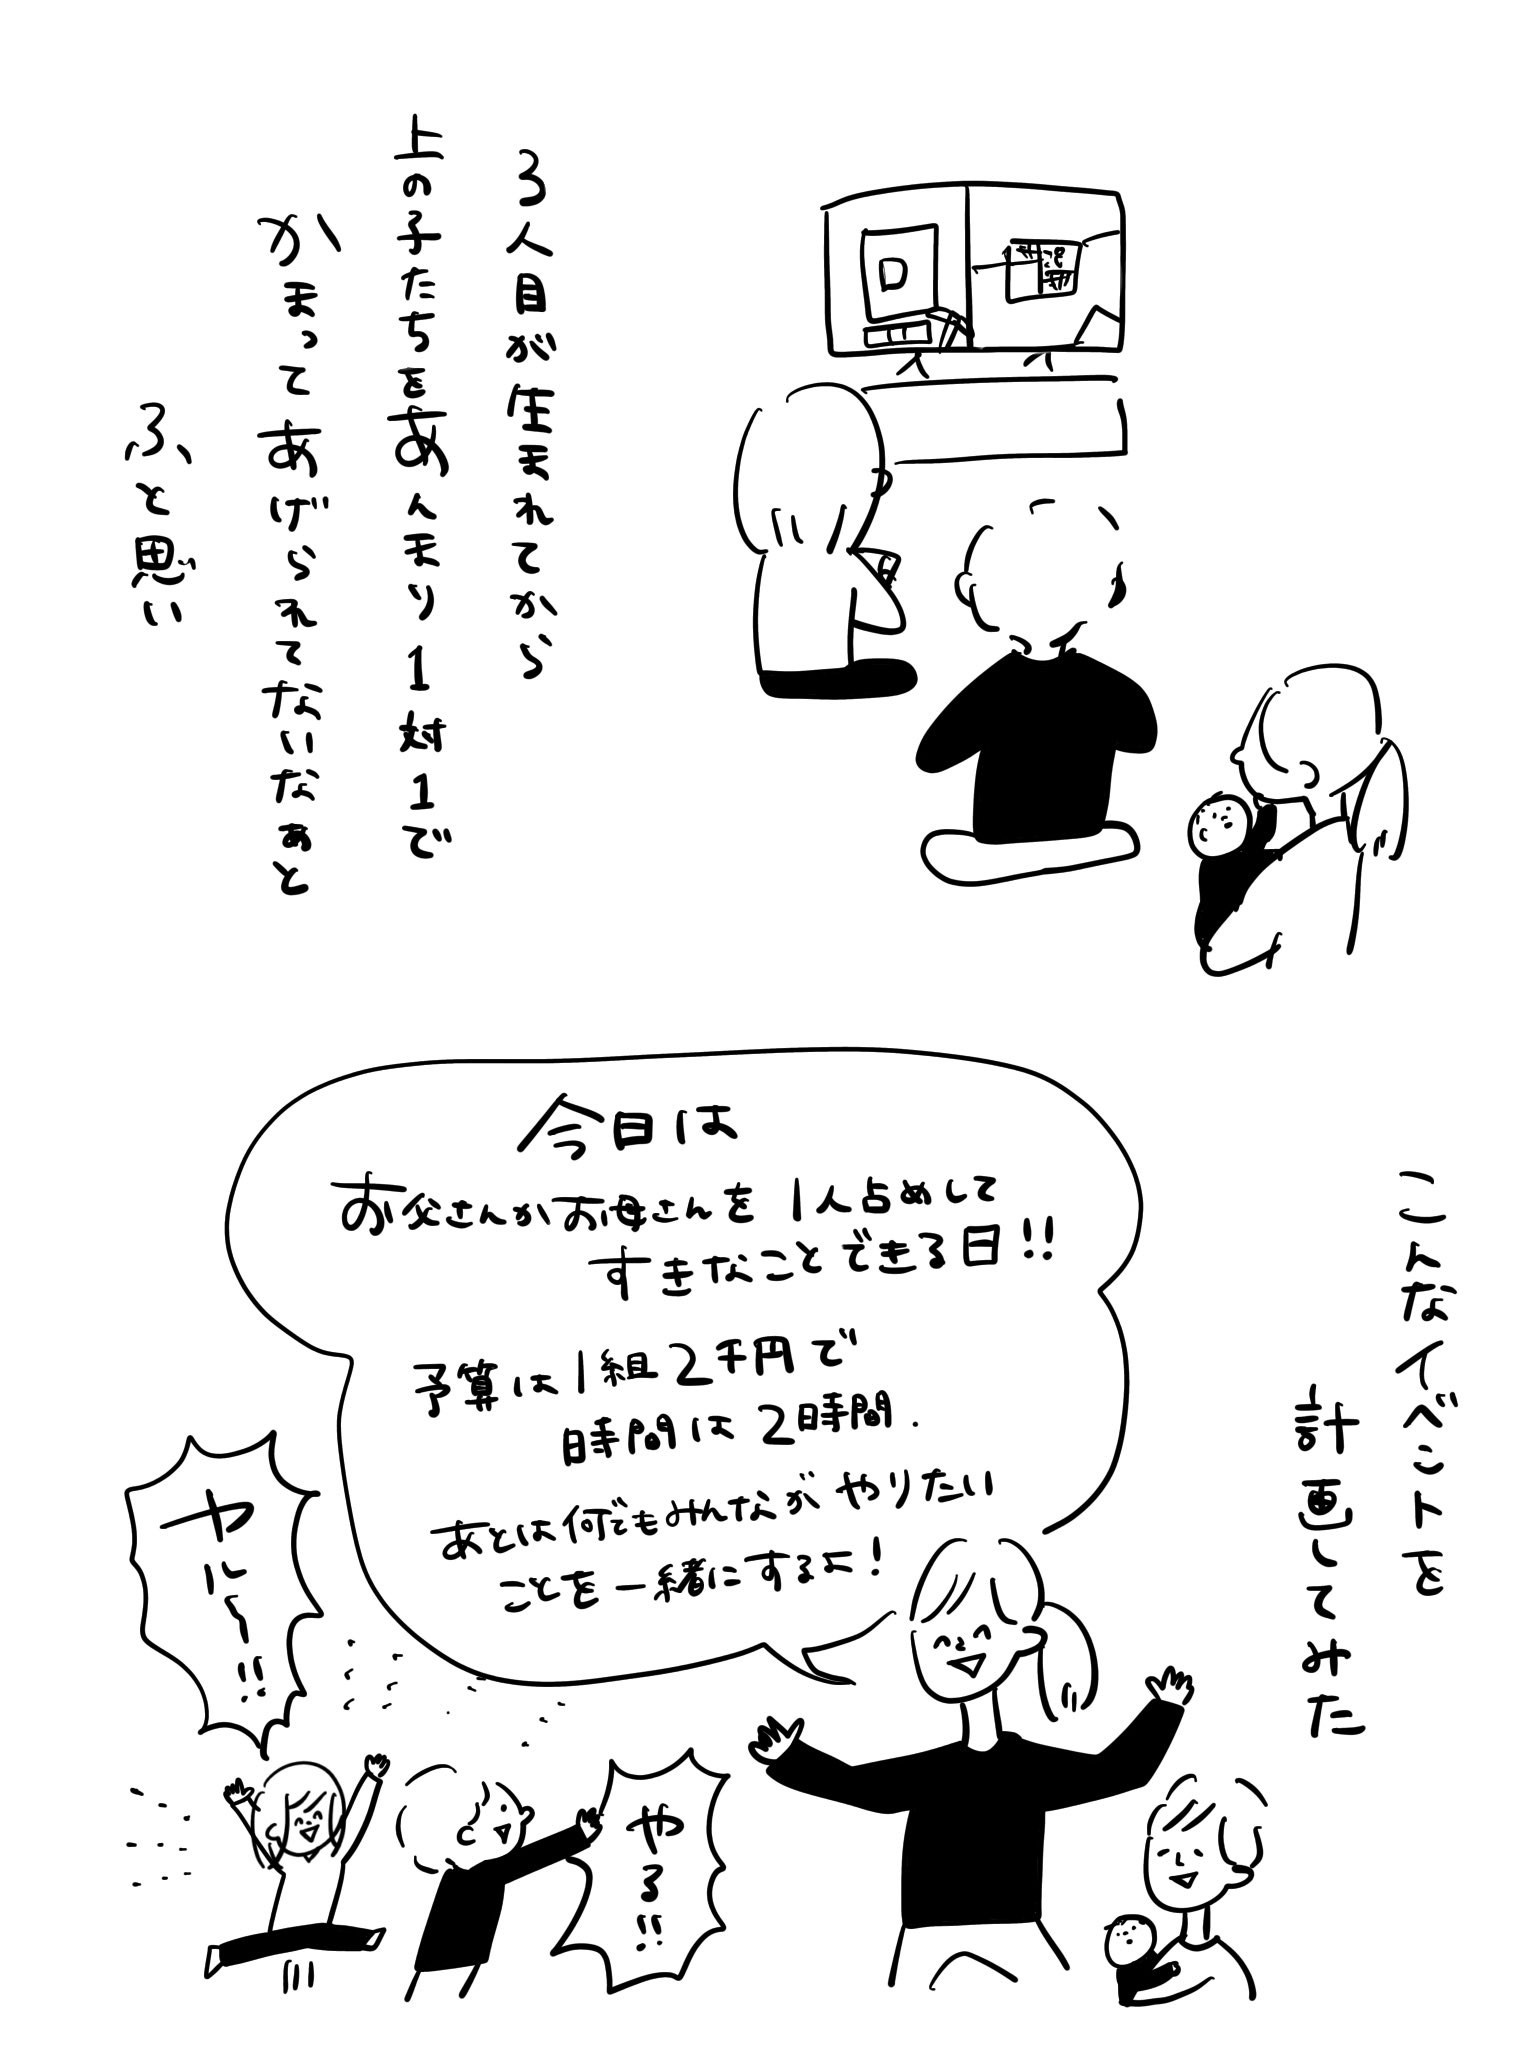 3人目が生まれてから
上の子たちをあんまり1対1で
かまってあげられてないなぁと
ふと思い
こんなイベントを
計画してみた
今日は
お父さんかお母さんを1人占めして
すきなことできる日!!
予算は1組2千円で
時間は2時間.
あとは何でもみんながやりたい
ことを一緒にするよ!
やる!!
ヤル〜!!